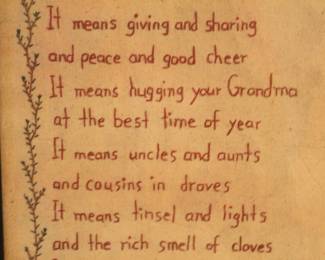 It means giving and sharing
and peace and good cheer
It means hugging your Grandma
at the best time of year
It means uncles and aunts
and cousins in droves
It means tinsel and lights
and the rich smell of cloves